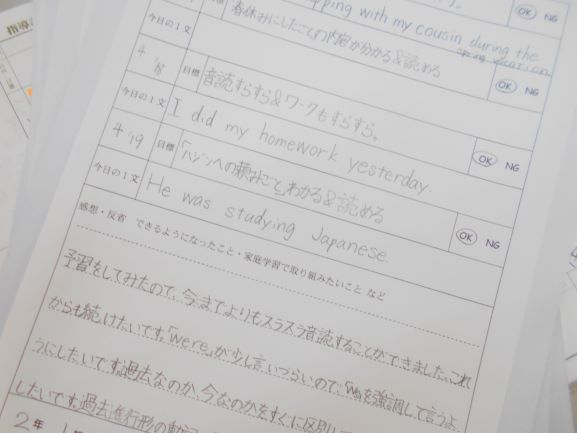 pping with my cousin during the
spring vacation.
OK NG
今日の1文
春休みにしたことの内容が分かる&読める
OK NG
4/18
目標
音読すらすら&ワークもすらすら。
今日の1文
I did my homework yesterday.
OK NG
4/19
目標
「ハジンへの頼みごと」わかる&読める
今日の1文
He was studying Japanese.
OK NG
感想・反省 できるようになったこと・家庭学習で取り組みたいこと など
予習をしてみたので、今までよりもスラスラ音読することができました。これ
からも続けたいです。「were」が少し言いづらいので、を強調して言うよ
うにしたいです。過去なのか、今なのかをすぐに区別し
したいです。過去進行形の動詞
2年 1
指導